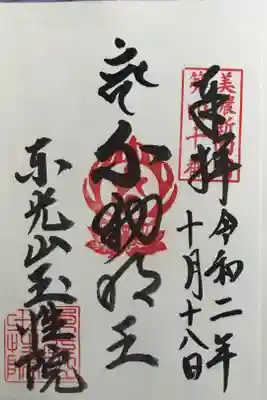 美濃新四国
奉拝
令和二年
十月十八日
不動明王
東光山玉性院